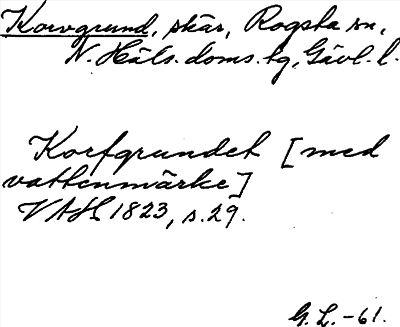 Korvgrund, skär, Rogsta sn,
N. Häls. doms. tg, Gävl. l.
Korfgrundet [med
vattenmärke]
VAH 1823, s. 29.
G. L. -61.